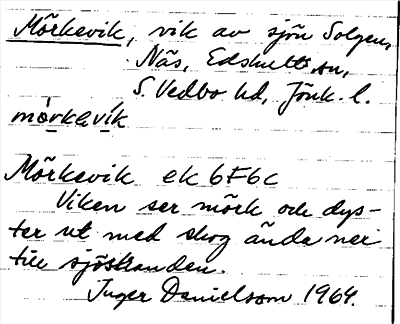 Mörkevik, vik av sjön Solgen,
Näs, Edshults sn,
S. Vedbo hd, Jönk. l.
mö̀rkəvík
Mörkevik ek 6F6c
Viken ser mörk och dys-
ter ut med skog ända ner
till sjöstranden.
Inger Danielsson 1964.